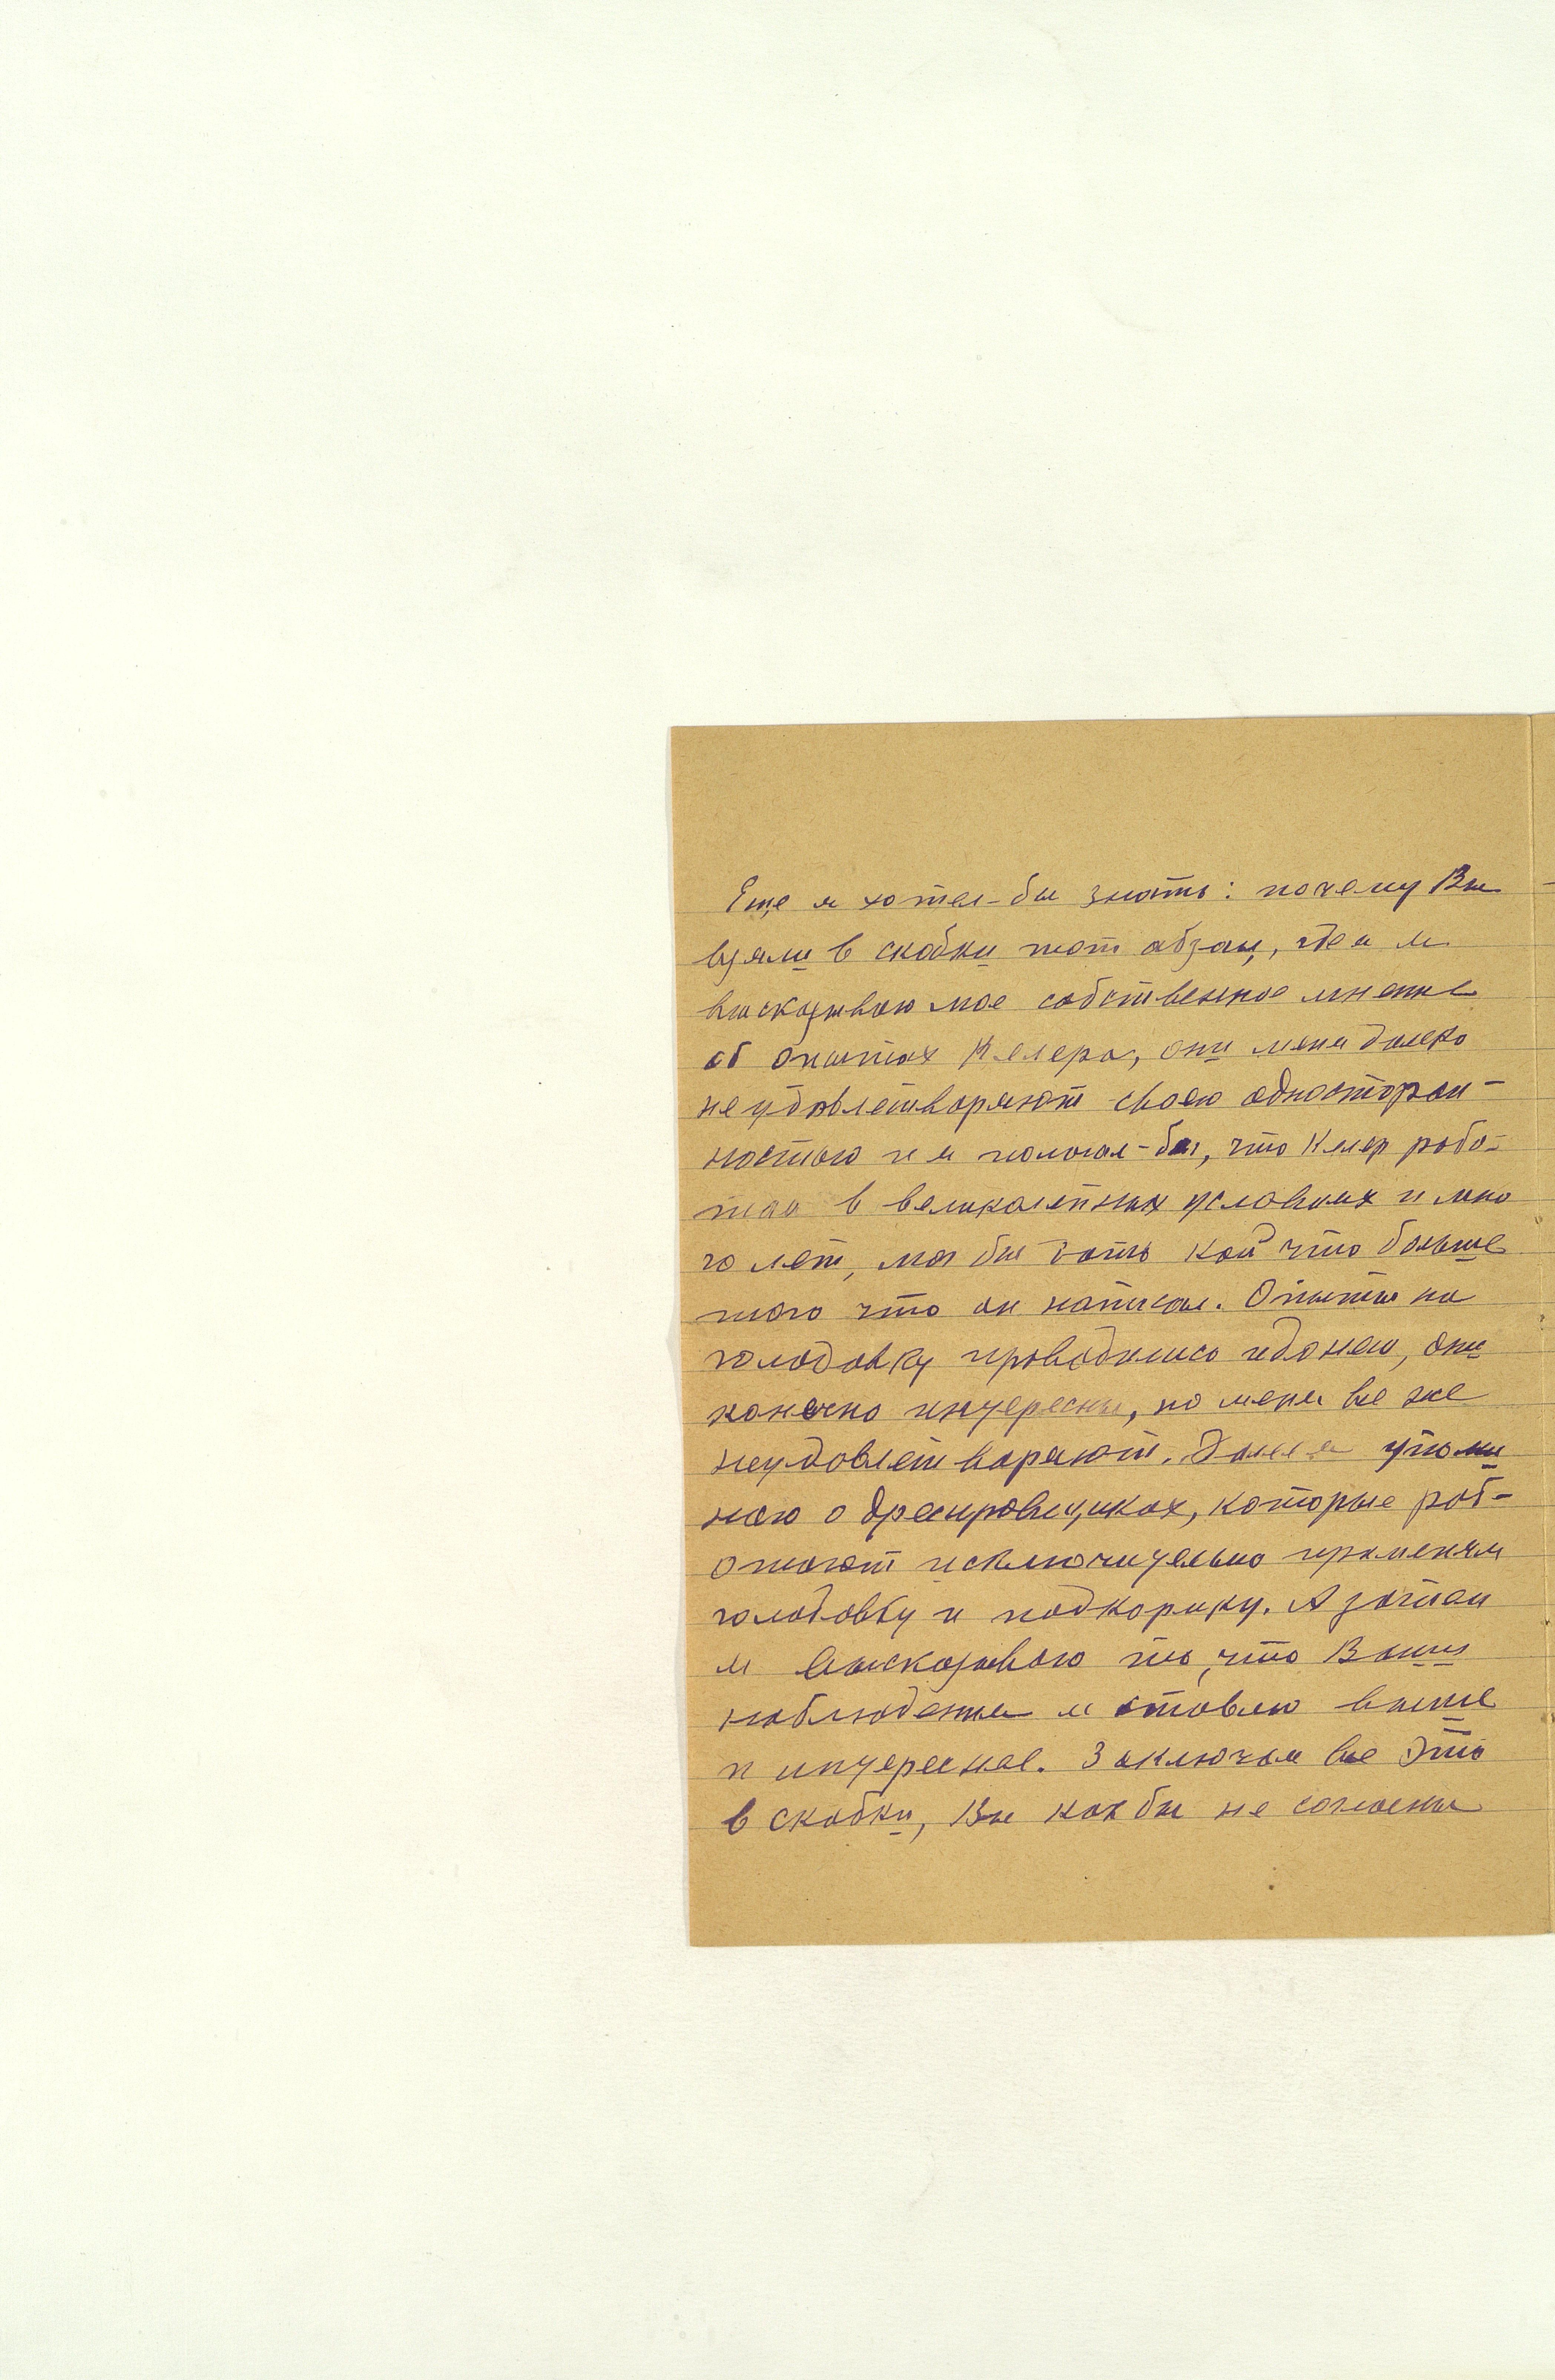 Еще я хотел-бы знать: почему Вы
взяли в скобки тот абзац, где я
высказываю мое собственное мнение
об опытах Келера, они меня далеко
не удовлетворяют своею односторон-
ностью и я полагал-бы, что Келер рабо-
тая в великолепных условиях и мно
го лет, мог бы дать кой что больше
того что он написал. Опыты на
голодовку проводились и до нею, они
конечно интересны, но меня все же
неудовлетворяют. Далее я упоми
наю о дресировщиках, которые раб-
отают исключительно применяя
голодовку и подкормку. А затем
я высказываю то, что Ваши
наблюдения я ставлю выше
и интереснее. Заключая все это
в скобки, Вы как бы не согласны